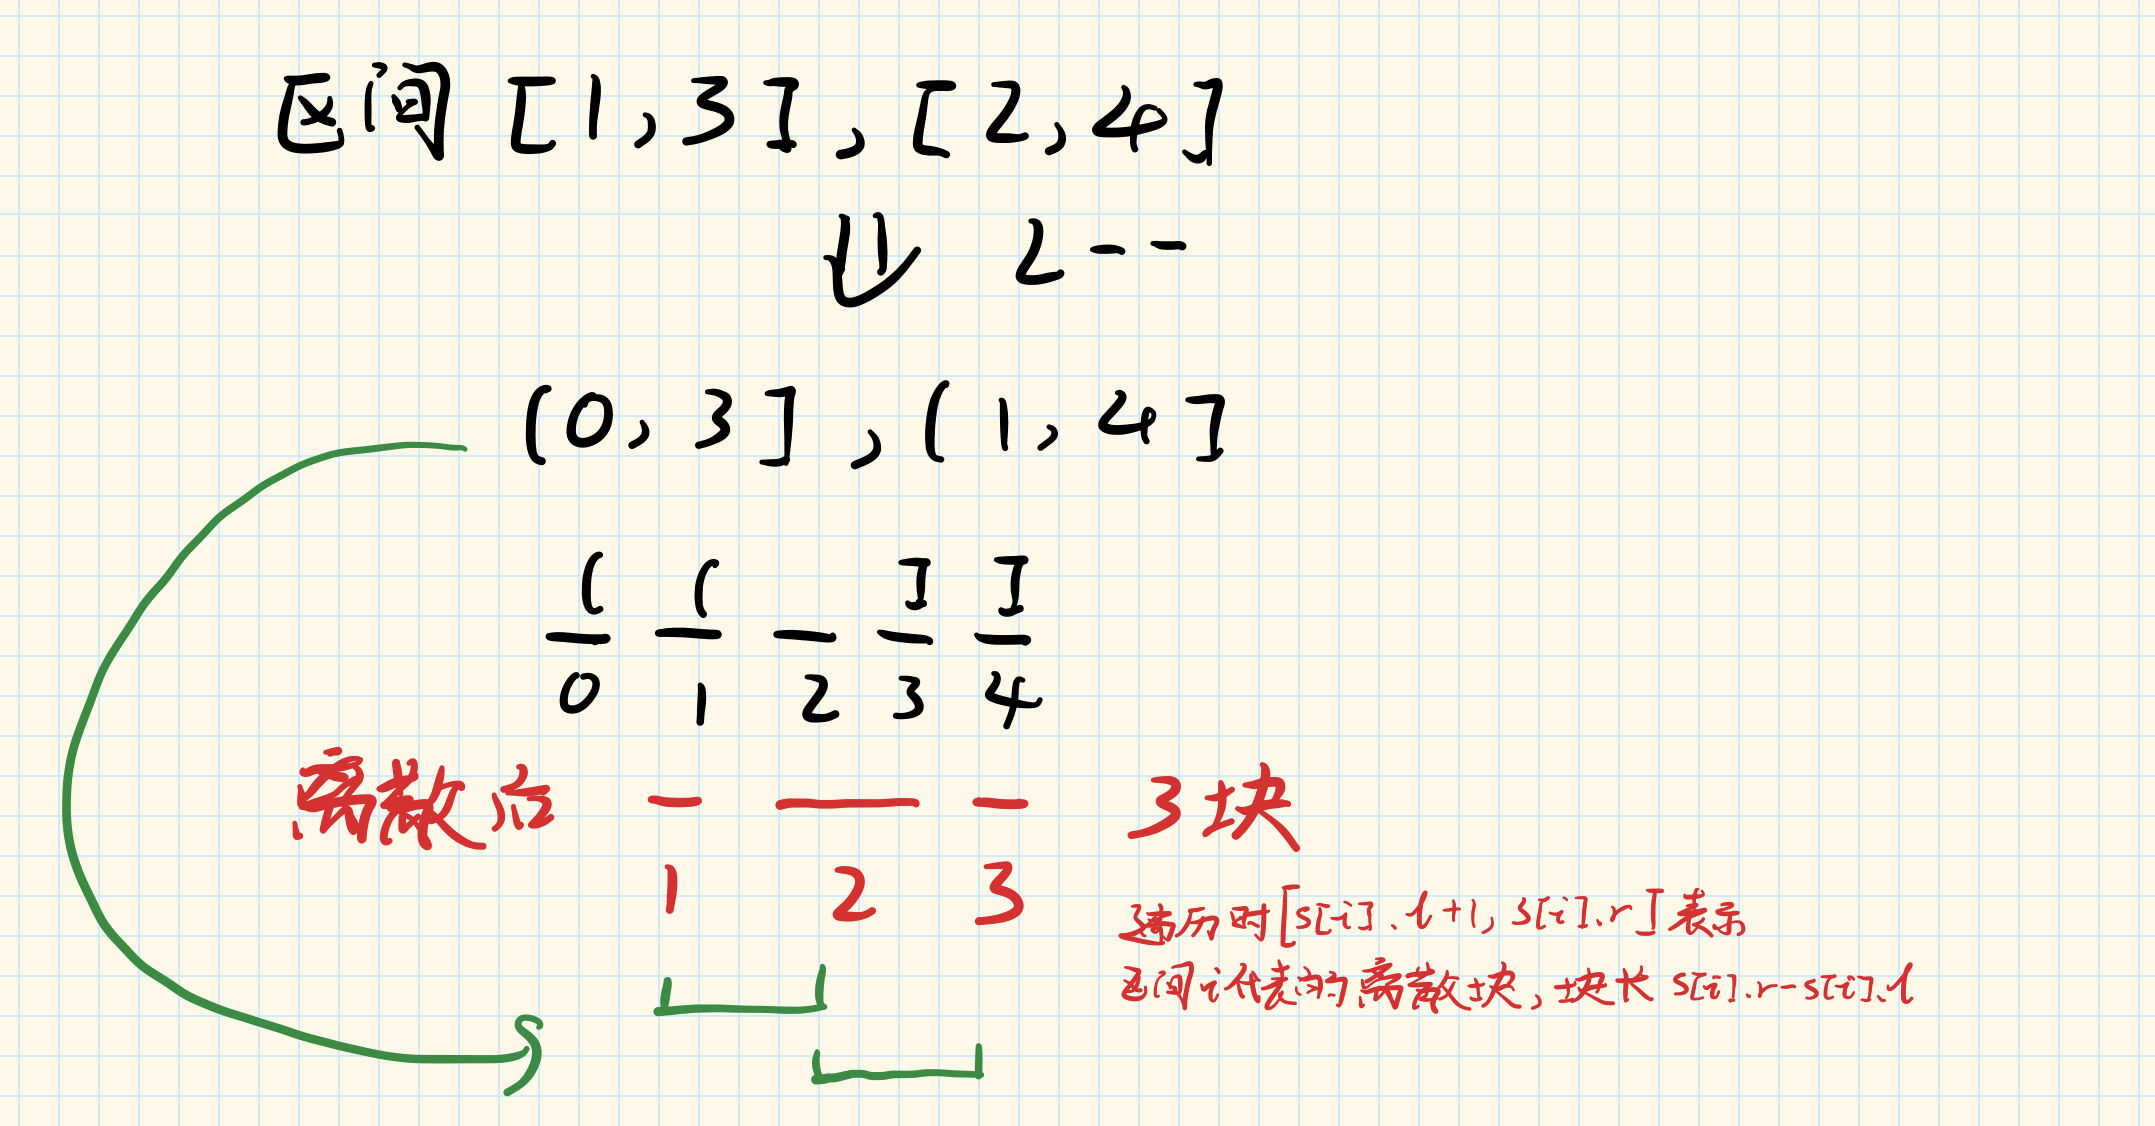 区间 [1,3], [2,4]
⇓ l--
(0,3], (1,4]
( ( ] ]
0 1 2 3 4
离散后 3块
1 2 3
遍历时[s[i].l+1, s[i].r]表示
区间i代表的离散块,块长 s[i].r-s[i].l